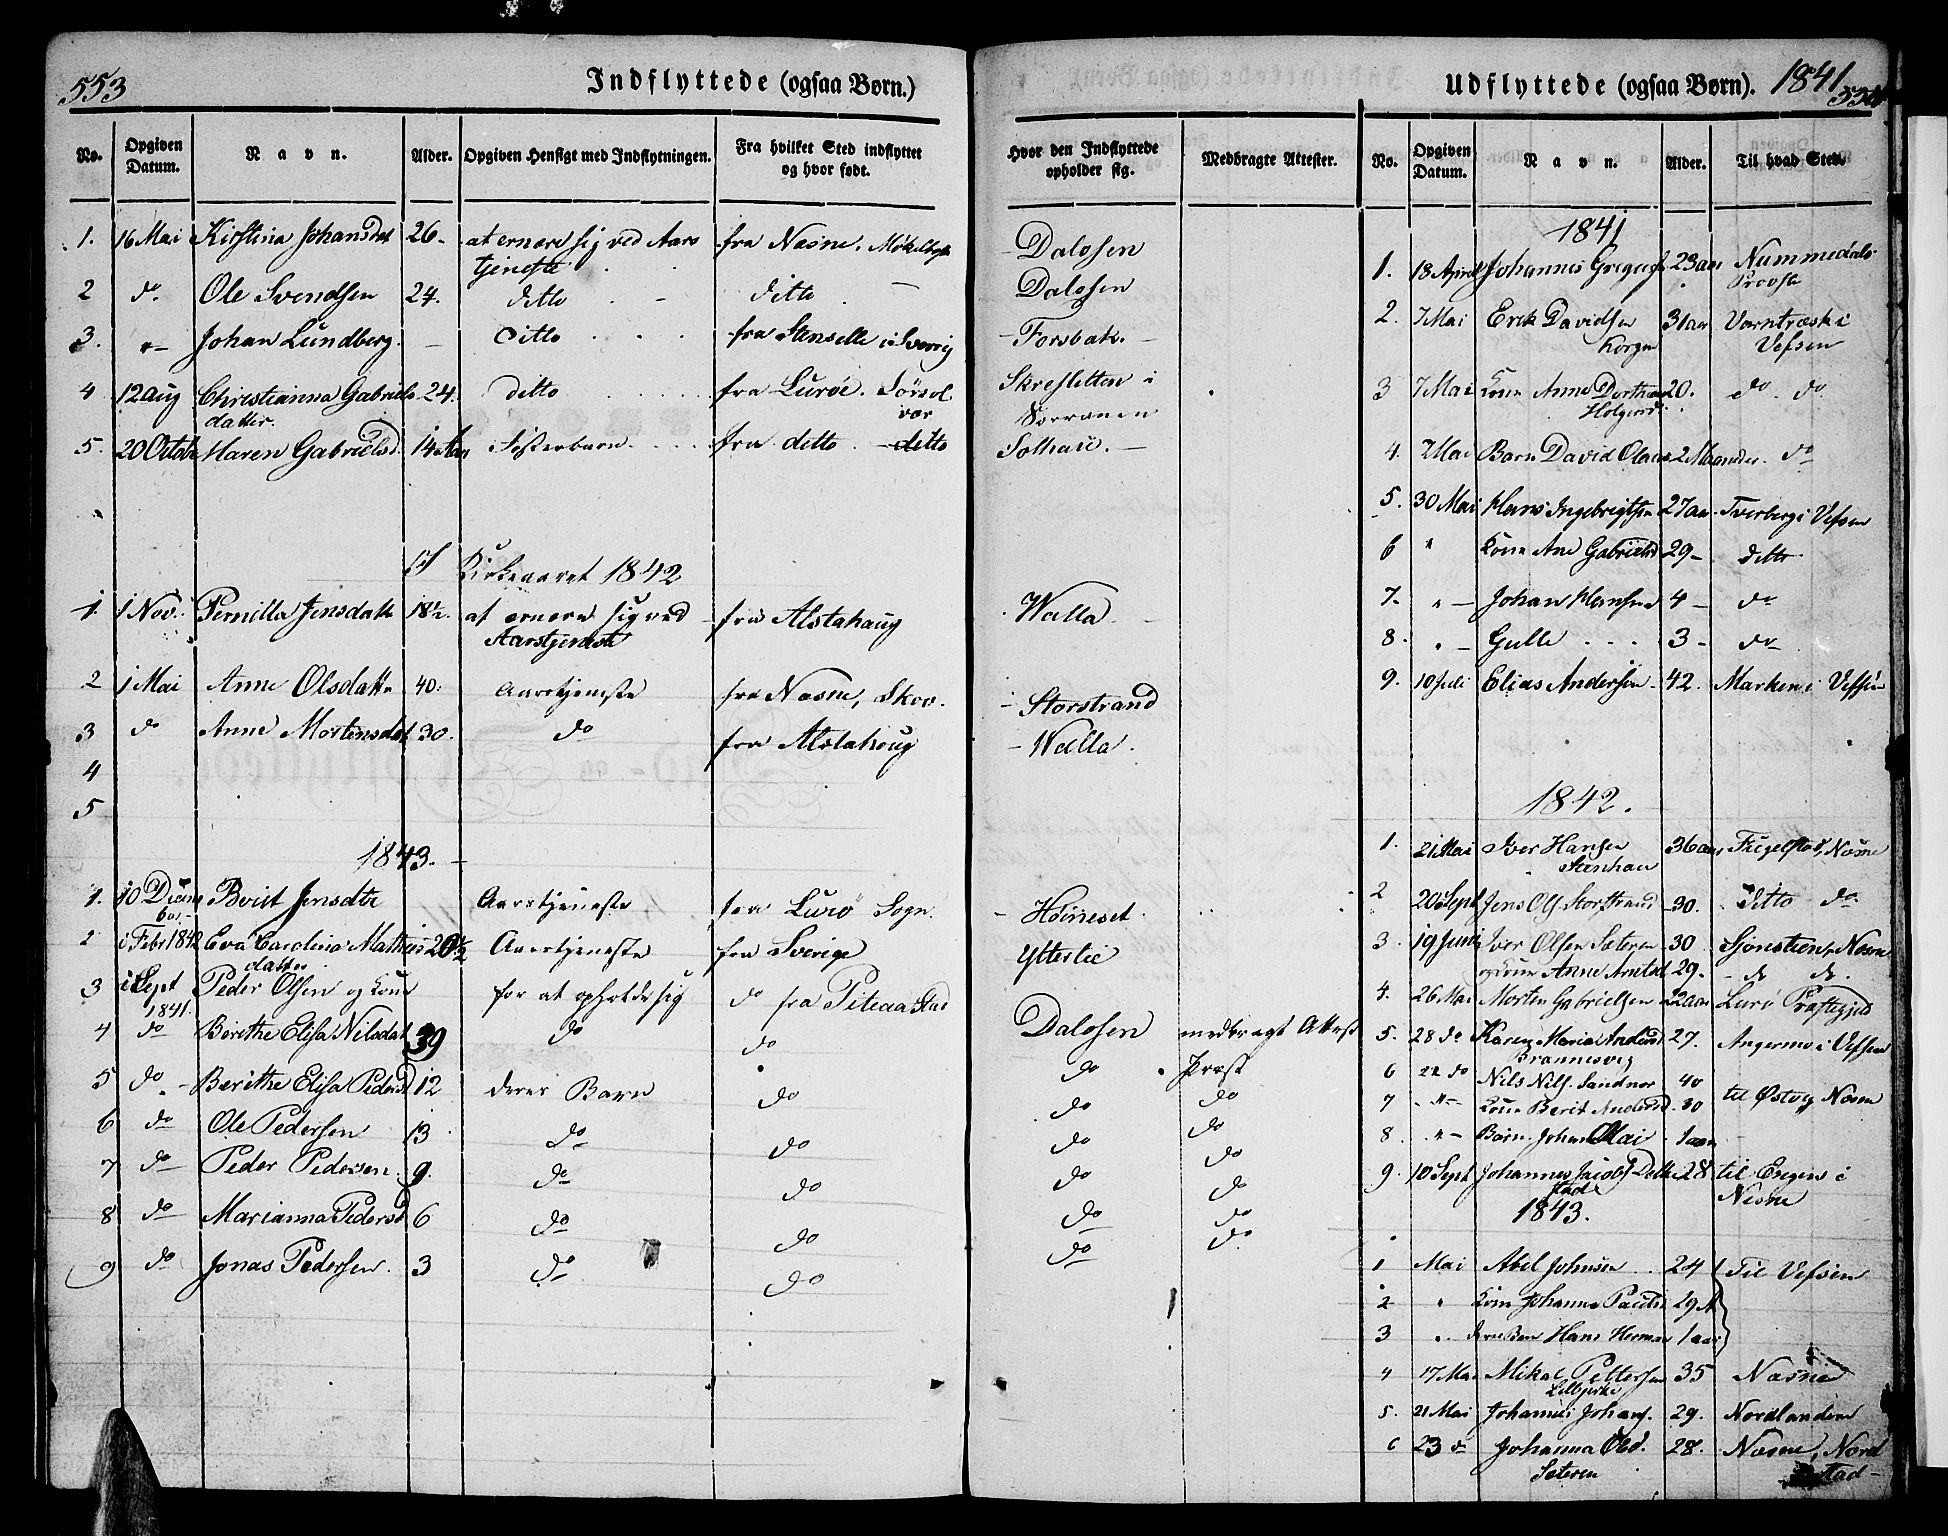 553
Indflyttede (ogsaa Børn.)
No. | Opgiven Datum. | Navn. | Alder. | Opgiven Hensigt med Indflytningen. | Fra hvilket Sted indflyttet og hvor født. | Hvor den Indflyttede opholder sig. | Medbragte Attester.
1. | 16 Mai | Kirstina Johansdat | 26 | at ernære sig ved Aarstjeneste | fra Næsne. | Dalosen
2 | do | Ole Svendsen | 24. | ditto | ditto | Dalosen
3. | "- | Johan Lundberg. | - | ditto | fra Stenselle i Sverrig | Forsbak.
4 | 12 Aug | Christianna Gabrielsdatter. | 24. | ditto | fra Lurøe. Sörsolvær | Skresletten i
5. | 20 Octobr | Maren Gabrielsd | 14 Aar | Søsterbarn | fra ditto - ditto
Kirkeaaret 1842
1. | 1 Nov. | Pernilla Jensdatt | 18½ | at ernære sig ved Aarstjeneste | fra Alstahaug | Walla
2 | 1 Mai | Anne Olsdattr | 40. | Aarstjeneste | fra Næsne, Skov. | Storstrand
3 | do | Anne Mortensdat | 30. | do | fra Alstahoug | Walla.
4
5
1843.
1. | 10 Decem | Berit Jensdtr | Aarstjeneste | fra Lurö Sogn. | Høineset
2 | 1 Febr 1842 | Eva Carolina Mathiisdatter | 20½ | Aarstjeneste | fra Sverige | Ytterlie
3 | 1 Sept 1841. | Peder Olsen og Kone | for at opholde sig | do fra Piteaa Stad | Dalosen | medbragt Attest
4 | do | Berithe Elisa Nilsdat | 39 | do | do | do | Præst
5 | do | Berithe Elisa Pedersd | 12 | deres Barn | do | do | do
6 | do | Ole Pedersen | 13 | do | do | do | do
7 | do | Peder Pedersen. | 9. | do | do | do | do
8 | do | Marianna Pedersd | 6 | do | do | do | do
9 | do | Jonas Pedersen. | 3 | do | do | do | do
Udflyttede (ogsaa Børn). 1841
554
No. | Opgiven Datum. | Navn. | Alder. | Til hvad Sted.
1841
1. | 18 April | Johannes Gregers | 23 aar | Nummedals Provsti
2. | 7 Mai | Erik Davidsen Korgen | 31 aar | Varntræsk i Vefsen
3 | 7 Mai | Kone Anne Dorthea Holgersd. | 20. | do. do.
4. | 7 Mai | Barn David Olaus | 2 Maaneder. | do
5. | 30 Mai | Hans Ingebrigtsen | 27 aar | Tverberg i Vefsen
6 | " | Kone Ane Gabrielsd | 29 - | ditto
7. | " - | Johan Hansen | 4 - | do
8. | " - | Gulle | 3 - | do
9. | 10 Juli | Elias Andersen | 42. | Marken i Vefsen
1842.
1. | 21 Mai | Iver Hansen | 36 aar | Fugelstad, Næsne
2 | 20 Sept | Jens Ols Storstrand | 30. | Ditto do.
3. | 19 Juni | Iver Olsen Sæteren | 30 | Sjonstien, Næsne
og Kone Anne Arntsd | 29. | - d. d.
4. | 26 Mai | Morten Gabrielsen | 22 aar | Lurö Præstegjeld
5. | 28 do | Karen Maria Andersd Brannesvig | 27. | Angermo i Vefsen
6 | 22 do | Nils Nils. Sandnes | 40 | til Østvig Næsne
7 | "- | Kone Berit Andersd | 30
8. | "- | Barn. Johan Olai | 1 aar
9. | 10 Sept | Johannes Jacobs | 28 | til i Næsne
1843.
1 | Mai | Abel Johnsen | 24 | Til Vefsen
2 | " | Kone Johanna Paulsd | 29
3 | " | deres Barn Hans Herman | 1 aar
4 | 17 Mai | Mikal Pettersen | 35 | Næsne
5. | 21 Mai | Johannes Johans. | 29. | Nordlandene
6 | 23 d | Johanna Olsd. Sæteren | 28. | Næsne, Nordstad -